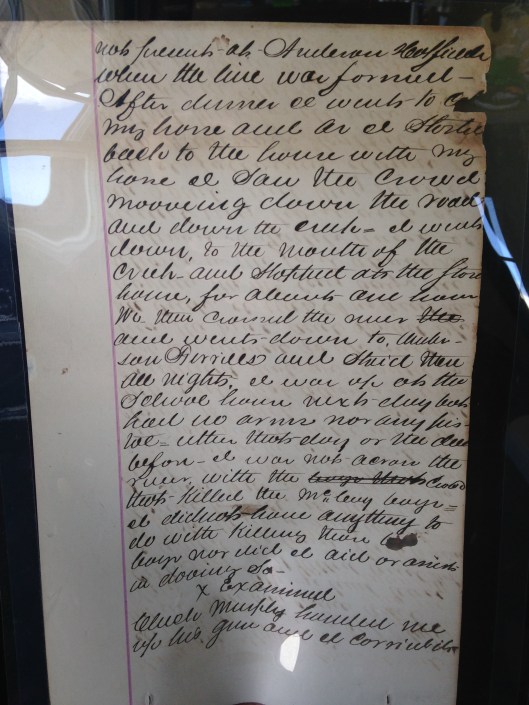 not present at Anderson Hatfields
when the line was formed -
After dinner I went to
my horse and as I Started
back to the house with my
horse I Saw the Crowd
mooving down the road
and down the creek = I went
down, to the mouth of the
Creek - and Stopped at the Store
house, for about one hour
We then Crossed the river the
and went down to, Ander-
son Ferrills and Staid there
all night. I was up at the
School house next day but
had no arms nor any pis-
tol = either that day or the day
before - I was not across the
river with the boys that Crowd
that Killed the McCoy boys =
I did not have anything to
do with Killing them
boys nor did I aid or assist
in dooing So -
X Examined
Murphy handed me
up his gun and I Carried the